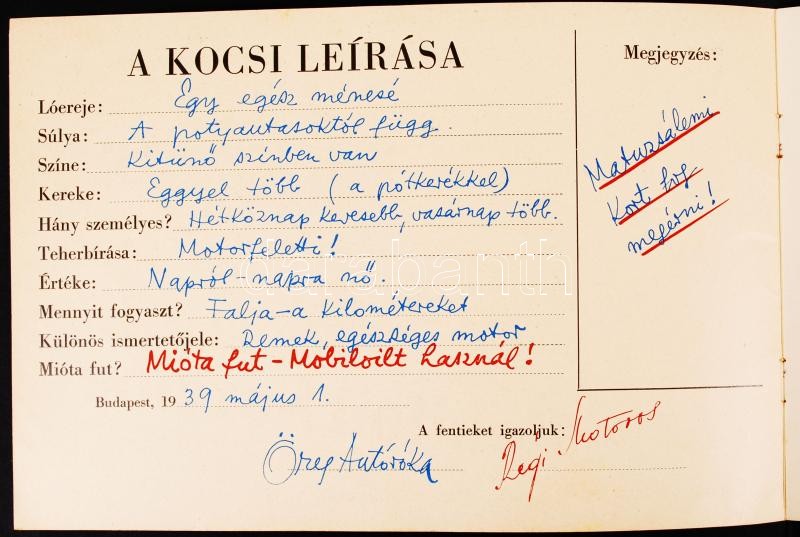 A KOCSI LEÍRÁSA
Lóereje: Egy egész ménesé
Súlya: A potyautasoktól függ.
Színe: Kitünő szinben van
Kereke: Eggyel több (a pótkerékkel)
Hány személyes? Hétköznap kevesebb, vasárnap több.
Teherbírása: Motorfeletti!
Értéke: Napról-napra nő.
Mennyit fogyaszt? Falja-a kilométereket
Különös ismertetőjele: Remek, egészséges motor
Mióta fut? Mióta fut - Mobiloilt használ!
Budapest, 1939 május 1.
Öreg Autóróka
Megjegyzés:
Matuzsálemi
Kort fog
megérni!
A fentieket igazoljuk:
Régi Motoros
darabanth